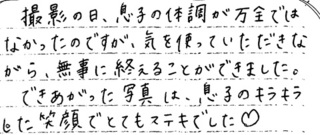 撮影の日、息子の体調が万全では
なかったのですが、気を使っていただきな
がら、無事に終えることができました。
できあがった写真は、息子のキラキラ
した笑顔でとてもステキでした♡